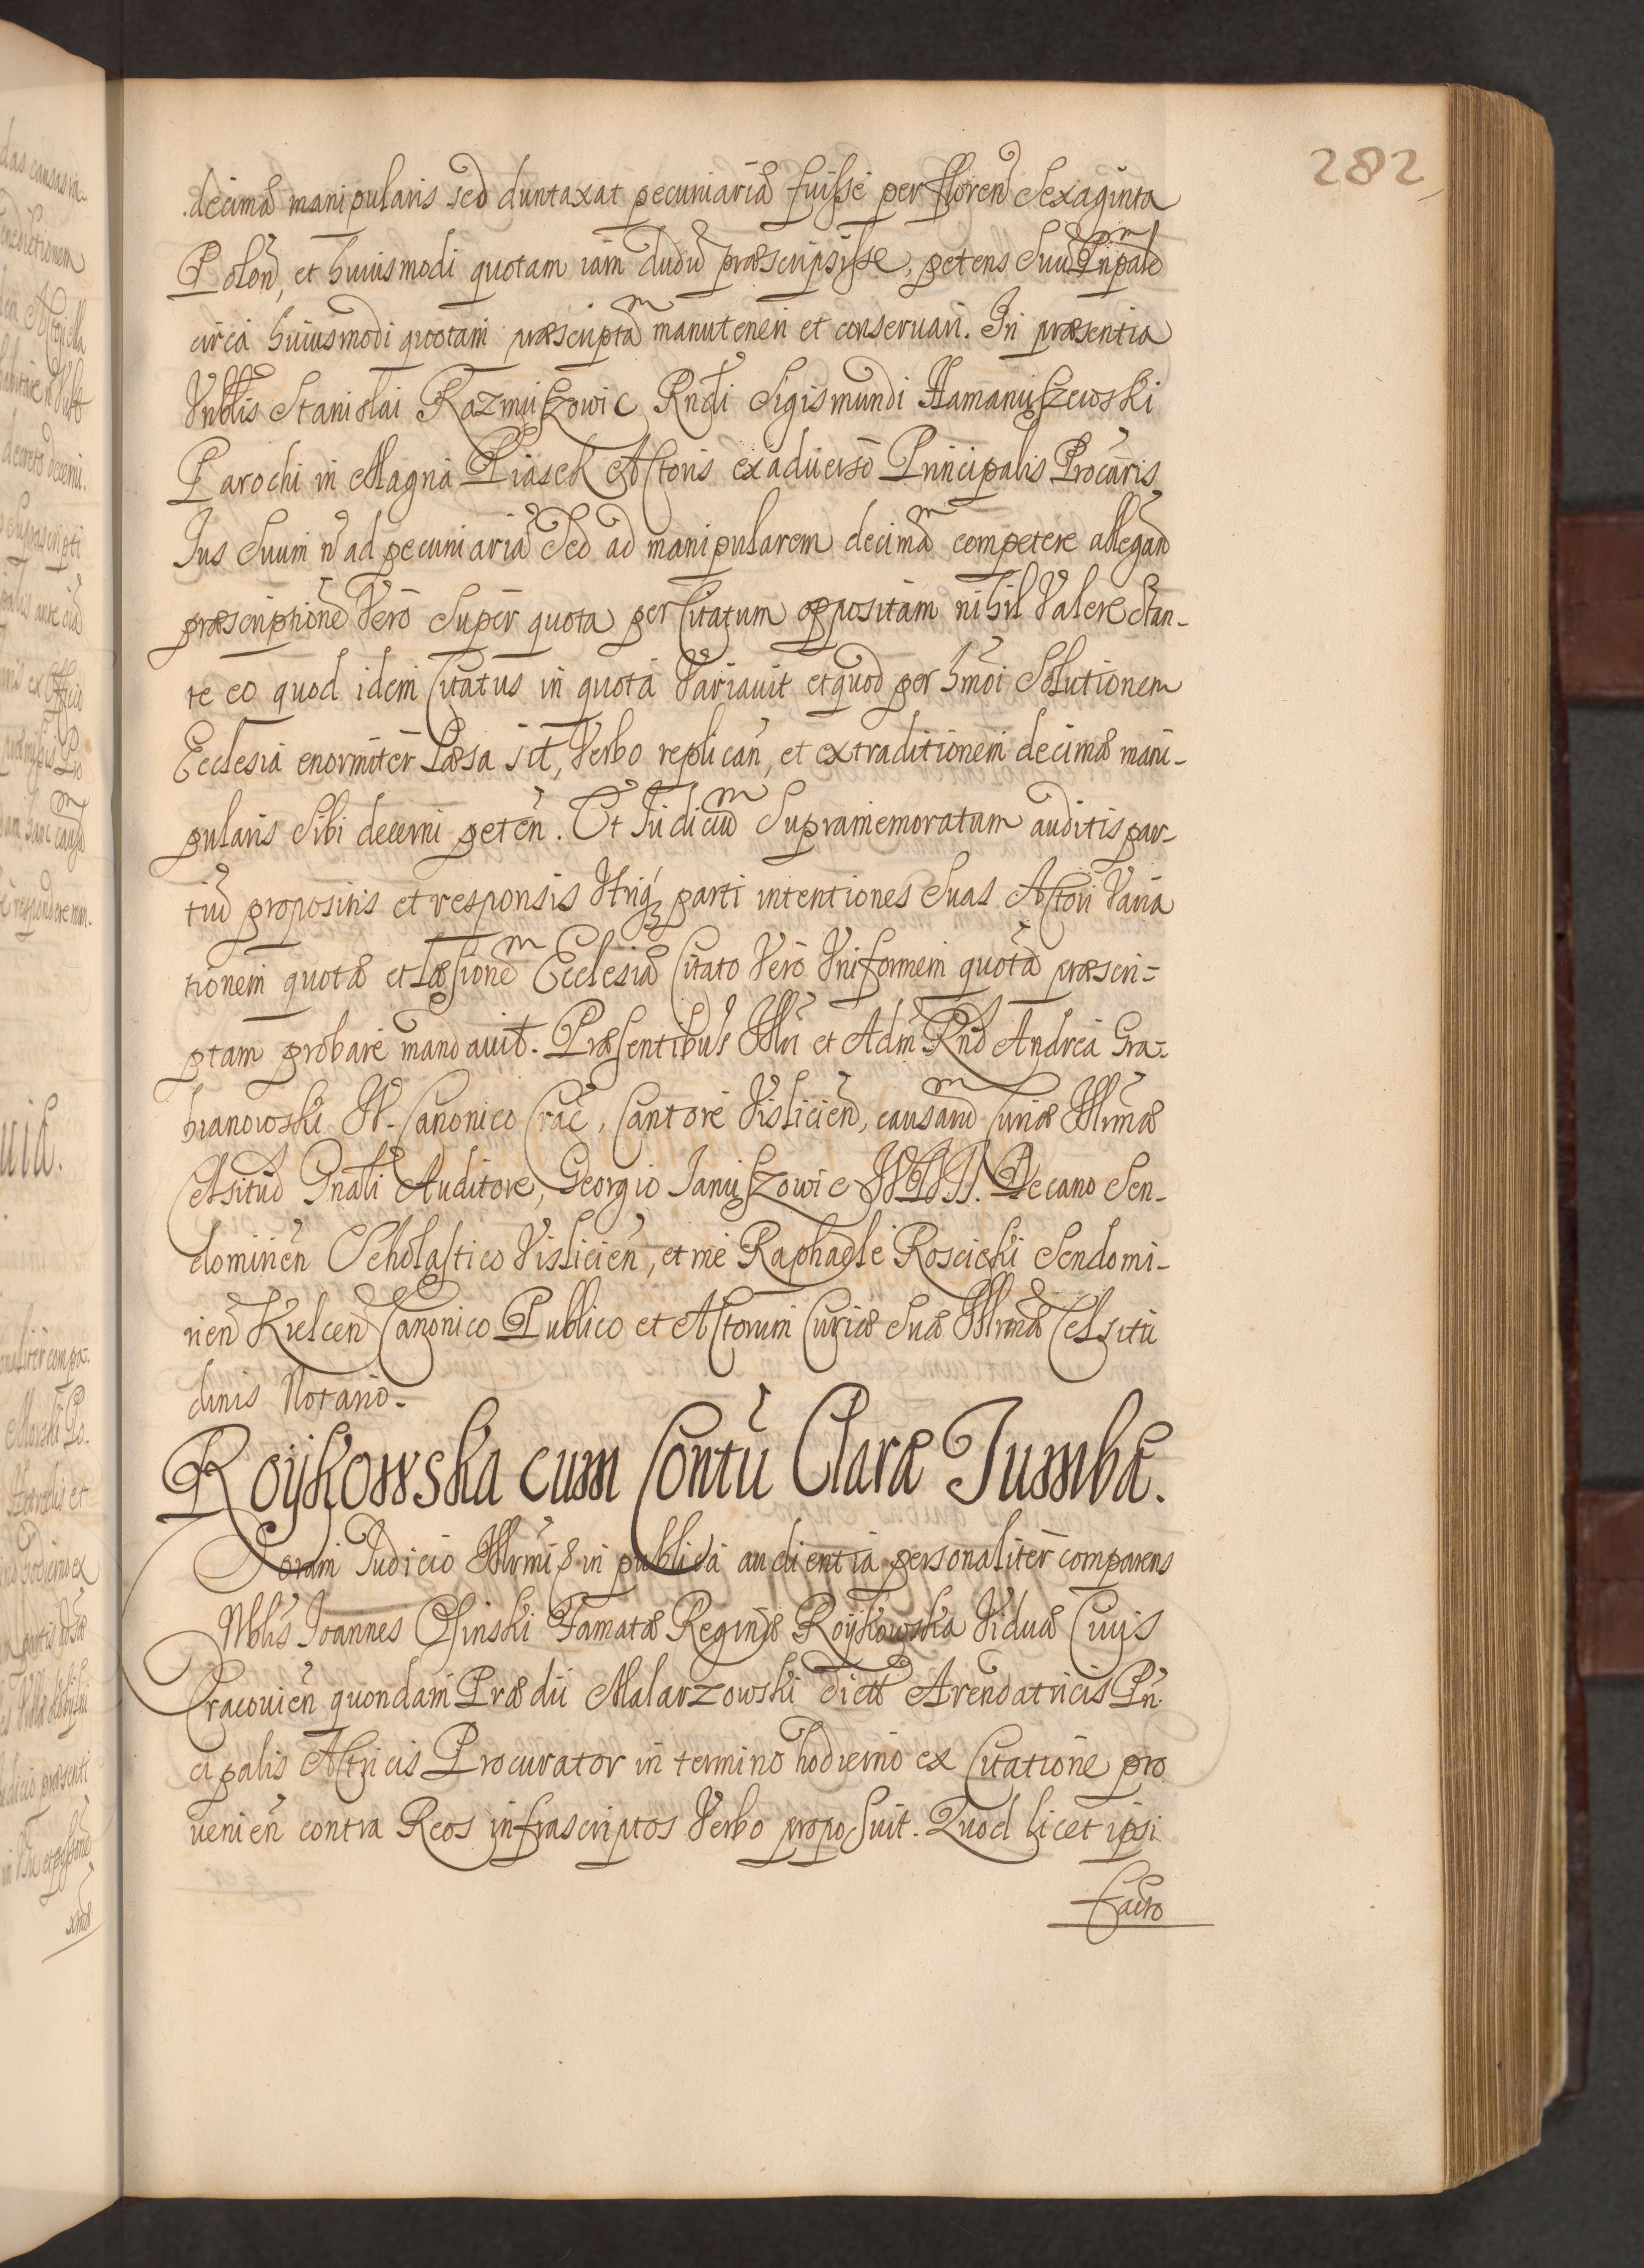 282
decimæ manipularis sed duntaxat pecuniariā fuisse per floren̄ Sexaginta
Polon̄, et huiusmodi quotam iam dudū præscripsisse, petens Suū Pñpalē
circa huiusmodi quotam præscriptā manuteneri et conseruari. In præsentia
Vnblis Stanislai Kazmiszowic Rñdi Sigismundi Hamaniszewski
Parochi in Magna Piasek Actoris ex aduerso Principalis Procūris
Ius Suum n̄ ad pecuniariā Sed ad manipularem decimā competere allegan̄
præscriptionē Vero Super quota per Citatum oppositam nihil Valere Stan-
te eo quod idem Citatus in quota Variauit et quod per hmōi Solutionem
Ecclesia enormiter Læsa sit, Verbo replican̄, et extraditionem decimæ mani-
pularis Sibi decerni peten̄. Et Iudiciū Supramemoratum auditis par-
tiū propositis et responsis Vtriq́ʒ parti intentiones Suas Actori Varia
tionem quotæ et Læsionē Ecclesiæ Citato Vero Vniformem quotā præscri-
ptam probare mandauit. Præsentibus Illri et Adm̄ Rnd̄ Andrea Gra-
bianowski IV. Canonico Crac̄, Cantore Vislicien̄, causarū Curiæ Illrmæ
Celsitud̄ Gnāli Auditore, Georgio Ianiszowic Decano Sen-
domirien̄ Scholastico Vislicien̄, et me Raphaele Roscicki Sendomi-
rien̄ Kielcen̄ Canonico Publico et Actorum Curiæ Suæ Illrmæ Celsitu
dinis Notario.
Roykowska cum Contū Claræ Tumbæ.
Coram Iudicio Illrmi & in publica audientia personaliter comparens
Nblis Ioannes Olsinski Famatæ Reginæ Roykowska Viduæ Ciuis
Cracouien̄ quondam Prædii Malarzowski dicti Arendatricis Prin̄
cipalis Actricis Procurator in termino hodierno ex Citatione pro
uenien̄ contra Reos infrascriptos Verbo proposuit. Quod licet ipsi
facto